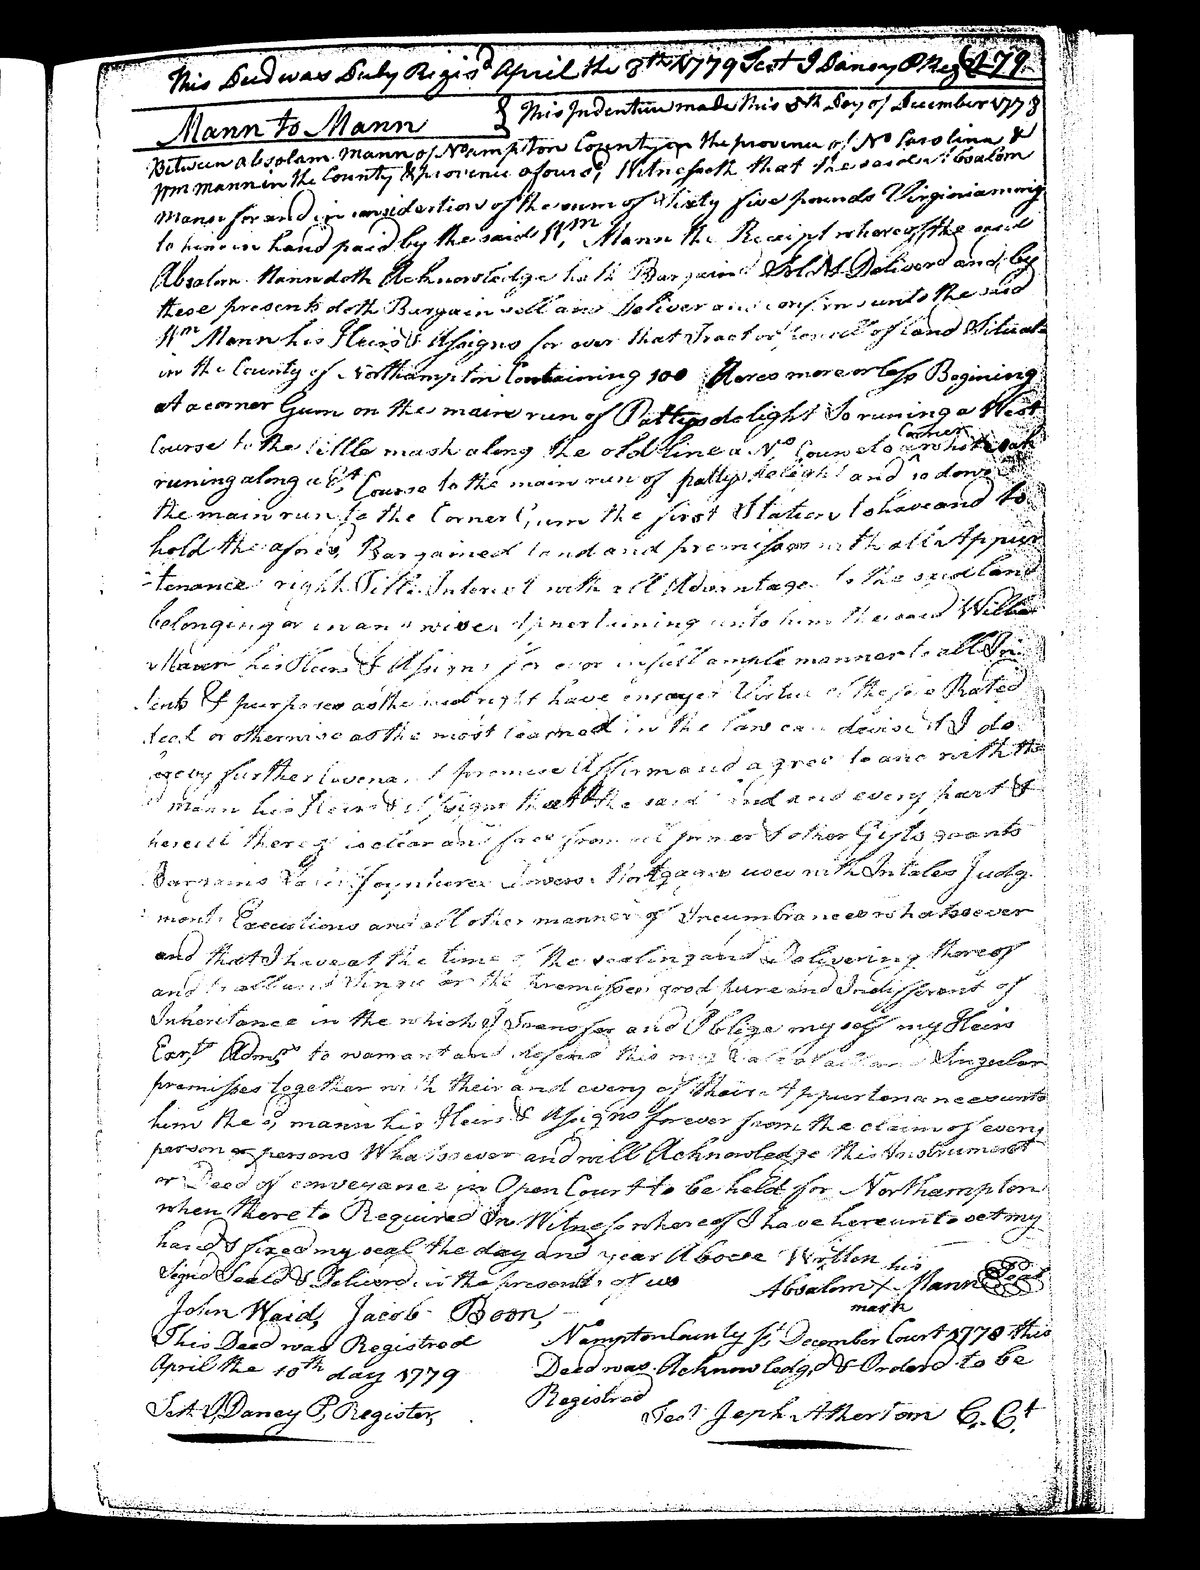 This Deed was Duly Regisd April the 8th 1779 Test J Dancy P Reg 479
Mann to Mann } This Indenture made this 5th Day of December 1778
Between Absolam Mann of Nhampton County in the provence of No Carolina &
Wm Mann in the County & provence afoursd, Witnesseth that the said Absalom
Mann for and in considertion of the sum of Sixty five pounds Virginia mony
to him in hand paid by the said Wm, Mann the Receipt whereof the said
Absalom Mann doth Acknowledge hath Bargaind Sold & Deliverd and by
these presents doth Bargain sell and Deliver and confirm unto the said
Wm Mann his Heirs & Assigns for ever that Tract or parcell of land Situate
in the County of Northampton Containing 100 Acres more or less Begining
at a corner Gum on the main run of Pattys delight So runing a West
Course to the little mash along the old line a No Course to a Corner white oak
runing along a Et, Course to the main run of pattys delight and so down
the main run to the Corner Gum the first Station to have and to
hold the aforesd, Bargained land and premisses with all Appur
tenance right Title Interest with all Advantage to the said land
belonging or in any wise Apnertaining unto him the said William
Mann his Heirs & Assigns for ever in full ample manner to all In
tents & purposes as the said right have enjoyed Virtue of these Rated
deed or otherwise as the most learned in the law can devise it I do
further Covenant promise Affirm and agree to and with the
mann his Heirs & Assigns that the said land and every part &
thereof is clear and free from all former & other Gifts grants
Bargains Sales Joynturer Dowers Mortgages uses with Intales Judg
ments Executions and all other manner of Incumbrances whatsoever
and that I have at the time of the sealing and Delivering thereof
and to all and Singular the Premisses good pure and Indifferent of
Inheritance in the which I Transfer and Oblige myself my Heirs
Exrs Admrs to warrant and defend this my Sale of all and Singular
premisses together with their and every of their Appurtenances unto
him the sd, mann his Heirs & Assigns forever from the claim of every
person or persons Whatsoever and will Acknowledge this Instrument
or Deed of conveyance in Open Court to be held for Northampton
when thereto Required In Witness whereof I have hereunto set my
hand & fixed my seal the day and year Above Written
Signd Seald & Deliverd in the presents of us
his
Absalom X Mann Seal
mark
John Waid, Jacob Boon,
This Deed was Registred
April the 10th day 1779
Test J, Dancy P, Register,
Nhampton County Ss, December Court 1778 this
Deed was Acknowledgd & Orderd to be
Registred
Test Jeph Atherton C. Ct